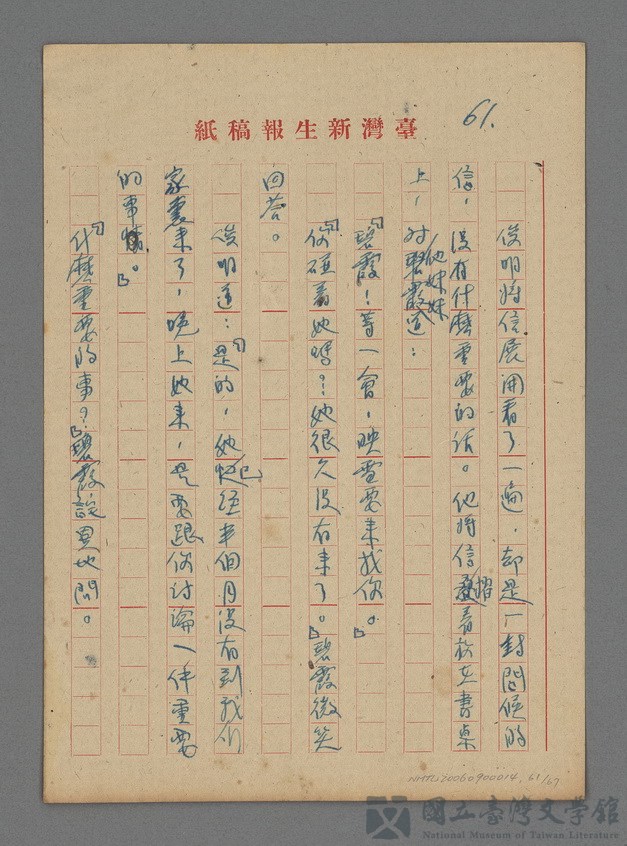 61.
紙稿報生新灣臺
俊明將信展開看了一遍，却是一封問候的
信，沒有什麼重要的話。他將信摺着放在書桌
上，對他妹妹碧霞道：
「碧霞！等一會，映雪要來找你。」
「你碰着她嗎？她很久沒有來了。」碧霞微笑
回答。
俊明道：「是的，她已經半個月沒有到我們
家裏來了，晚上她來，是要跟你討論一件重要
的事情。」
「什麼重要的事？」碧霞詫異地問。
NMTL20060900014, 61/67
國立臺灣文學館
National Museum of Taiwan Literature